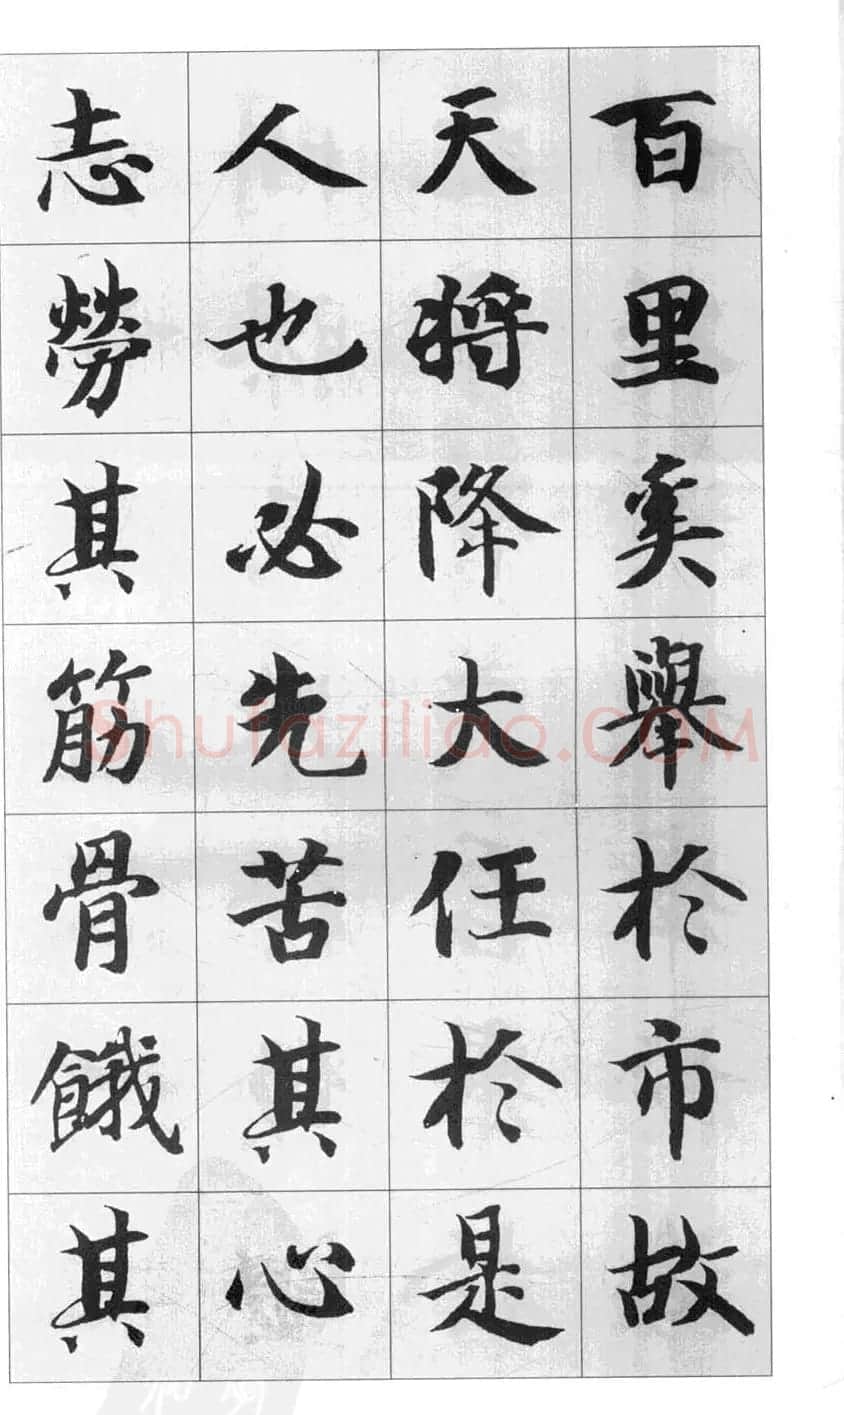 百里奚舉於市故
天將降大任於是
人也必先苦其心
志勞其筋骨餓其
Shufaziliao.COM